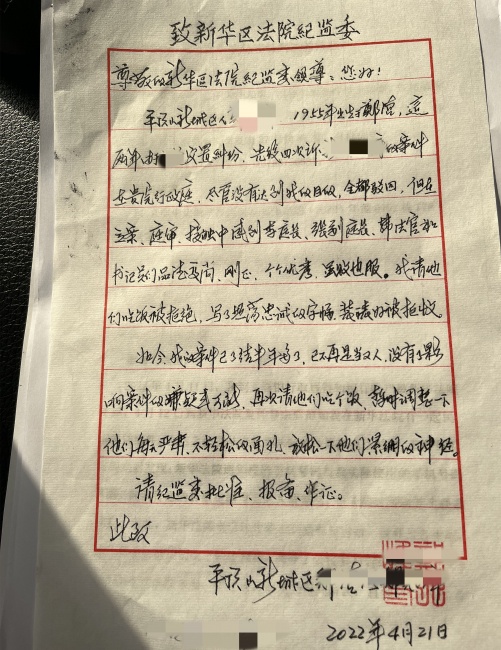 致新华区法院纪监委
尊敬的新华区法院纪监委领导：您好！
平顶山新城区人 1955年出生于郾宫，这
两年 安置纠纷，先后四次诉 的案件
在贵院行政庭，尽管没有达到我的目的，全部驳回，但在
立案、庭审、接触中感到李庭长、张副庭长、韩法官和
书记员们品德高尚、刚正、个个优秀，虽败也服。我请他
们吃饭被拒绝，写了坦荡忠诚的字幅，装裱好被拒收
如今，我的案件已了结半年多了，已不再是当人，没有了影
响案件的嫌疑或方式，再次请他们吃个饭，暂时调整一下
他们每天严肃、不轻松的面孔，放松一下他们紧绷的神经。
请纪监委批准、报备、作证。
此致
平顶山新城区
2022年4月21日